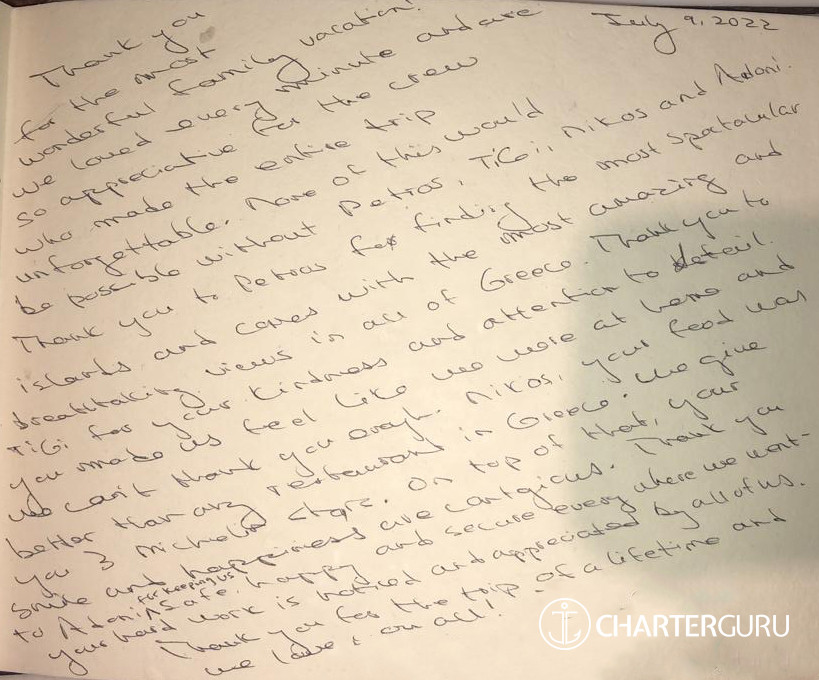 July 9, 2022
Thank you
for the most
wonderful family vacation!
we loved every minute and are
so appreciative for the crew
who made the entire trip
unforgettable. None of this would
be possible without Petros, TiGi, Nikos and Adoni.
Thank you to Petros for finding the most spectacular
islands and coves with the most amazing and
breathtaking views in all of Greece. Thank you to
TiGi for your kindness and attention to detail.
you made us feel like we were at home and
we can't thank you enough. Nikos, your food was
better than any restaurant in Greece. We give
you 3 Michelin stars. On top of that, your
smile and happiness are contgious. Thank you
to Adoni for keeping us safe, happy and secure every where we went-
your hard work is noticed and appreciated by all of us.
Thank you for the trip of a lifetime and
we love you all!
CHARTERGURU